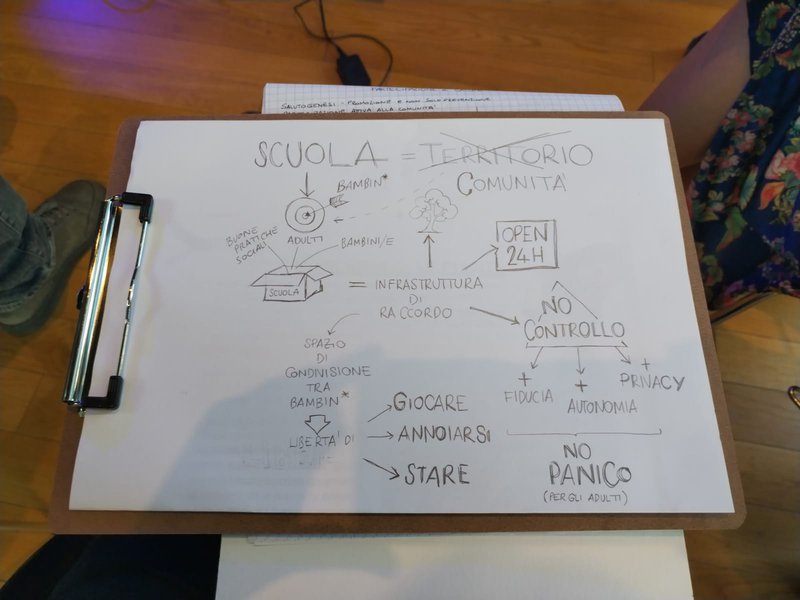 SALUTOGENESI - PROMOZIONE E NON SOLO PREVENZIONE
ATTIVA ALLA COMUNITÀ
SCUOLA = TERRITORIO
COMUNITÀ
BAMBIN*
ADULTI
BUONE
PRATICHE
SOCIALI
BAMBINI/E
SCUOLA
= INFRASTRUTTURA
DI
RACCORDO
OPEN
24H
NO
CONTROLLO
+
FIDUCIA
+
AUTONOMIA
+
PRIVACY
NO
PANICO
(PER GLI ADULTI)
SPAZIO
DI
CONDIVISIONE
TRA
BAMBIN*
LIBERTÀ DI
GIOCARE
ANNOIARSI
STARE